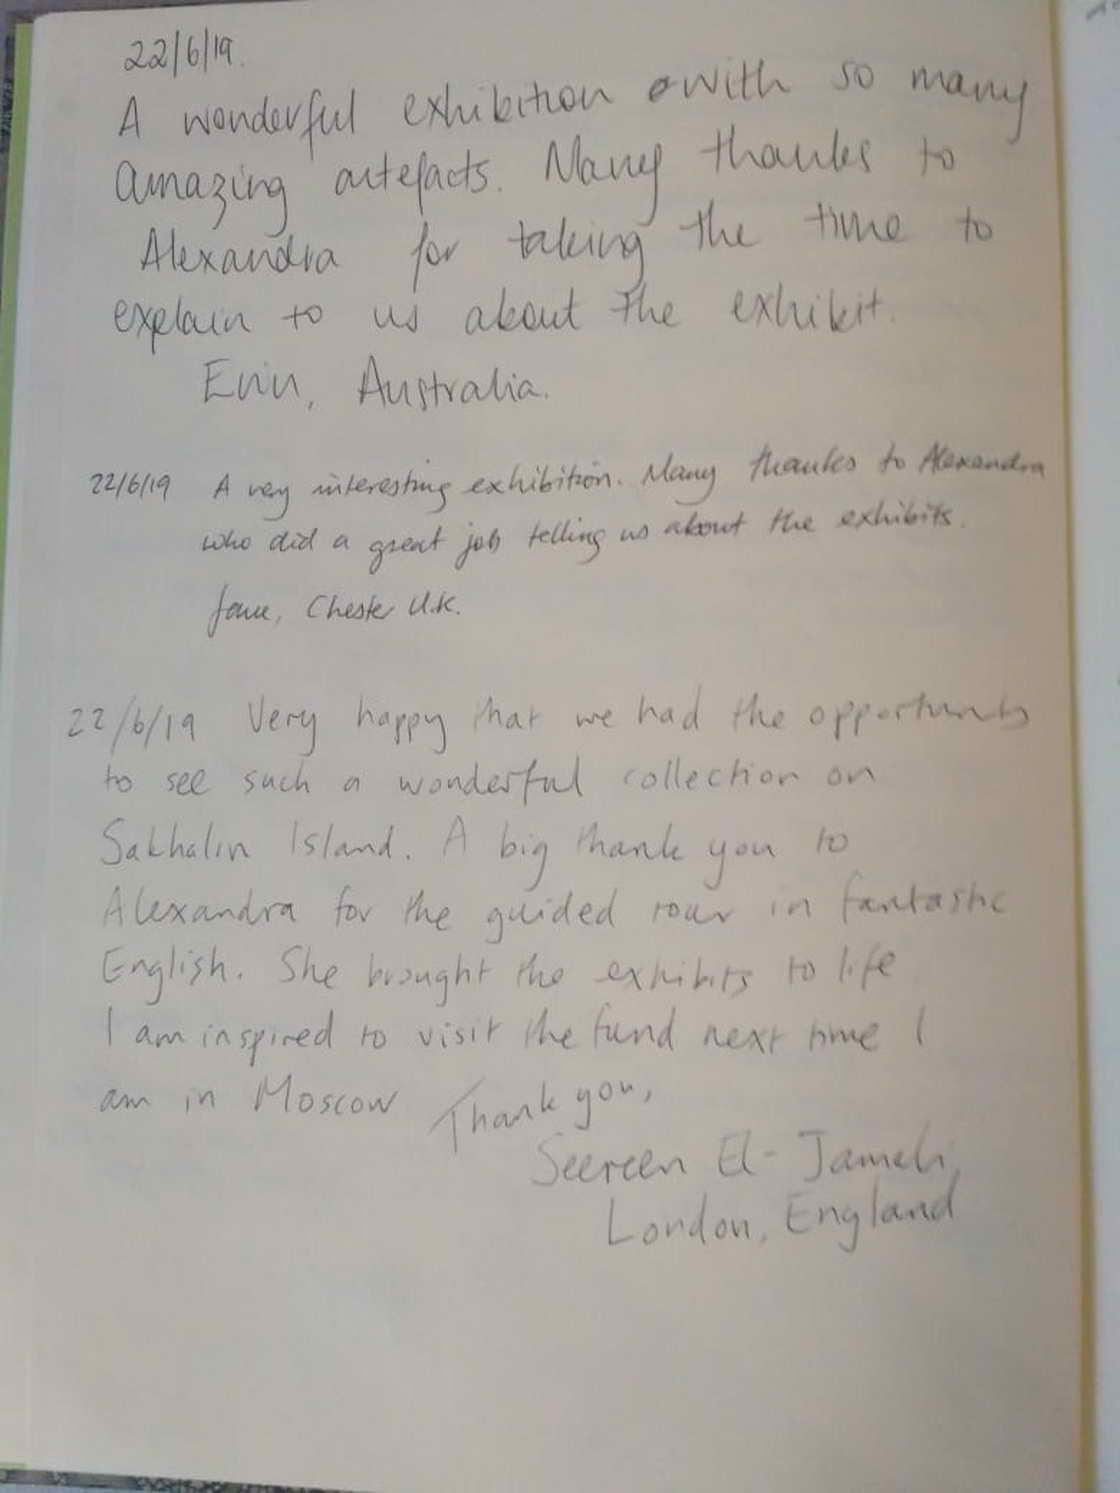 22/6/19.
A wonderful exhibition with so many
amazing artefacts. Many thanks to
Alexandra for taking the time to
explain to us about the exhibit.
Erin, Australia.
22/6/19 A very interesting exhibition. Many thanks to Alexandra
who did a great job telling us about the exhibits.
Jane, Chester U.K.
22/6/19 Very happy that we had the opportunity
to see such a wonderful collection on
Sakhalin Island. A big thank you to
Alexandra for the guided tour in fantastic
English. She brought the exhibits to life
I am inspired to visit the fund next time I
am in Moscow Thank you,
Seereen El-
London, England